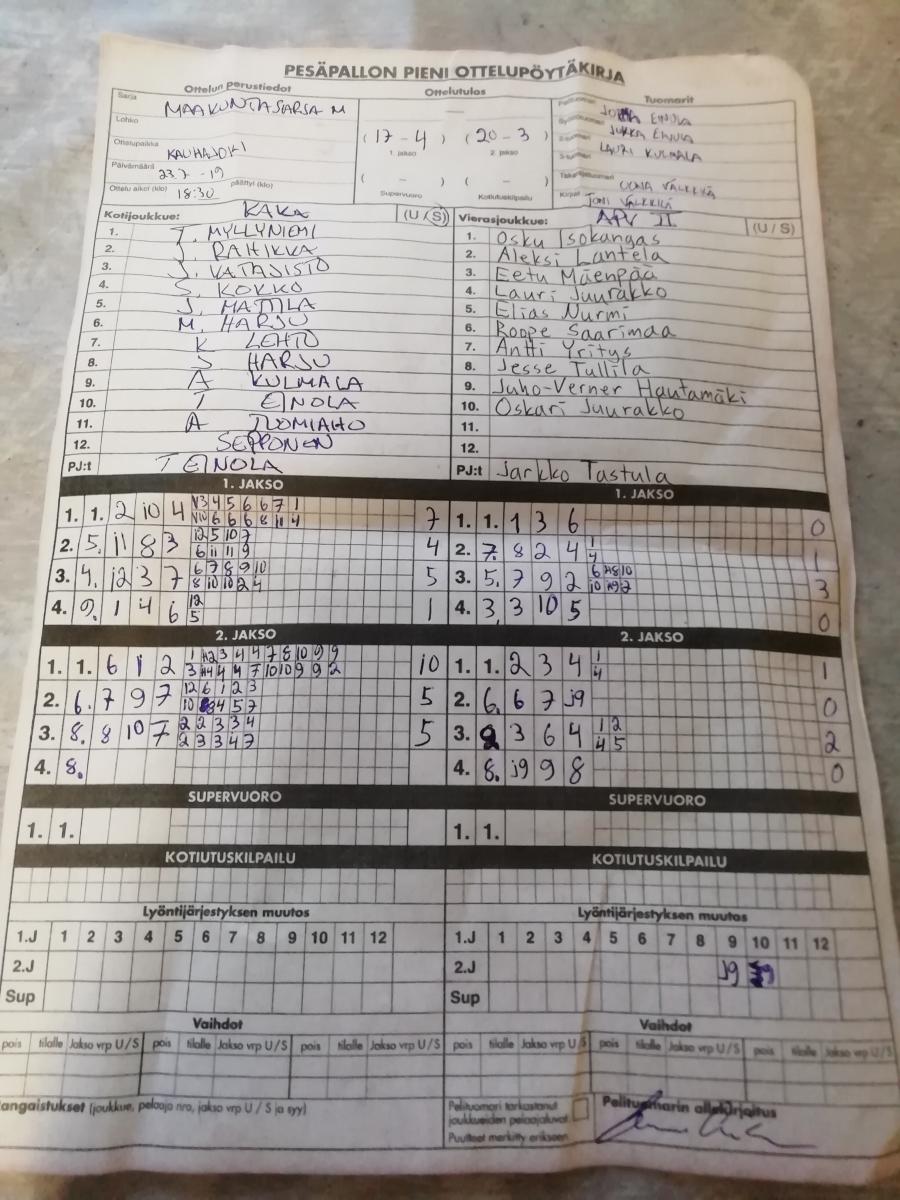 PESÄPALLON PIENI OTTELUPÖYTÄKIRJA
Ottelun perustiedot Ottelutulos Tuomarit
Sarja MAAKUNTASARJA M
Lohko
Ottelupaikka KAUHAJOKI
Päivämäärä 23.7-19
Ottelu alkoi (klo) 18:30 päättyi (klo)
(17-4) (20-3)
1. jakso 2. jakso
( - ) ( - )
Supervuoro Kotiutuskilpailu
JUKKA EINULA
LAURI KULMALA
VÄLKKILÄ
JONI VÄLKKILÄ
Kotijoukkue: KAKA (U/S)
1. J. MYLLYNIEMI
2. J. RAHIKKA
3. J. KATAJISTO
4. S. KOKKO
5. J. MATTILA
6. M. HARJU
7. K LEHTO
8. J HARJU
9. A KULMALA
10. T EINOLA
11. A TUOMIAHO
12. SEPPONEN
PJ:t T EINOLA
Vierasjoukkue: APV II (U/S)
1. Osku Isokangas
2. Aleksi Lantela
3. Eetu Mäenpää
4. Lauri Juurakko
5. Elias Nurmi
6. Roope Saarimaa
7. Antti Yritys
8. Jesse Tullila
9. Juho-Verner Hautamäki
10. Oskari Juurakko
11.
12.
PJ:t Jarkko Tastula
1. JAKSO
1. 1. 2 10 4 7
2. 5. 11 8 3 12 5 10 7 4
6 11 11 9
3. 4. 12 3 7 6 7 8 9 10 5
8 10 10 2 4
4. 9. 1 4 6 12 1
5
1. JAKSO
1. 1. 1 3 6 0
2. 7. 8 2 4 1 1
4
3. 5. 7 9 2 3
4. 3. 3 10 5 0
2. JAKSO
1. 1. 6 1 2 10
2. 6. 7 9 7 12 6 1 2 3 5
3. 8. 8 10 7 2 2 3 3 4 5
2 3 3 4 7
4. 8.
2. JAKSO
1. 1. 2 3 4 1 1
4
2. 6. 6 7 J9 0
3. 3 6 4 1 2 2
4 5
4. 8. J9 9 8 0
SUPERVUORO
1. 1.
SUPERVUORO
1. 1.
KOTIUTUSKILPAILU
KOTIUTUSKILPAILU
Lyöntijärjestyksen muutos
1.J 1 2 3 4 5 6 7 8 9 10 11 12
2.J
Sup
Lyöntijärjestyksen muutos
1.J 1 2 3 4 5 6 7 8 9 10 11 12
2.J J9
Sup
Vaihdot
pois tilalle Jakso vrp U/S pois tilalle Jakso vrp U/S pois tilalle Jakso vrp U/S
Vaihdot
pois tilalle Jakso vrp U/S pois tilalle Jakso vrp U/S pois tilalle Jakso vrp U/S
angaistukset (joukkue, pelaaja nro, jakso vrp U / S ja syy)
Pelituomari tarkastanut
joukkueiden pelaajaluvat
Puutteet merkitty erikseen
Pelituomarin allekirjoitus